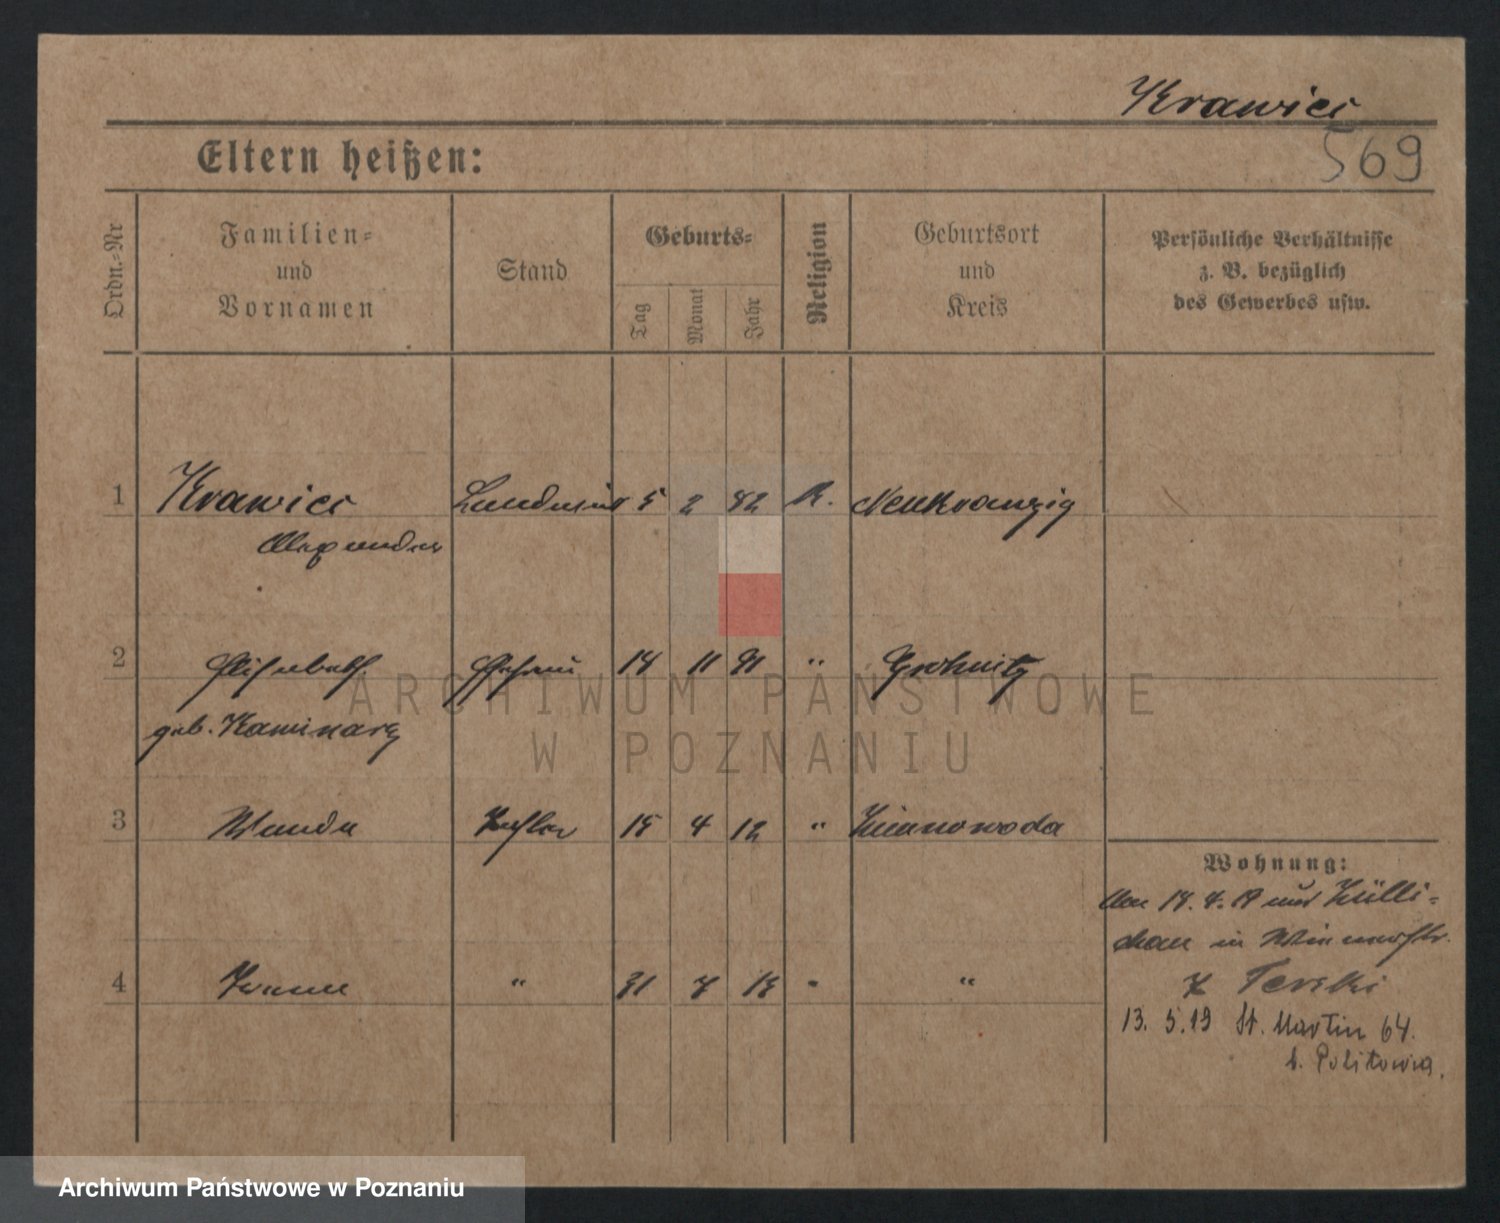 Krawiec
569
Eltern heißen:
Ordn.-Nr
Familien-
und
Vornamen
Stand
Geburts-
Tag
Monat
Jahr
Religion
Geburtsort
und
Kreis
Persönliche Verhältnisse
z. B. bezüglich
des Gewerbes usw.
1 Krawiec 5 2 82 K. Neukranzig
Alexander
2 Elisabeth Ehefrau 14 11 91 "
geb.
3 Wanda Tochter 15 4 12 " Zimnowoda
Wohnung:
14. 4. 19 aus Zülli-
chau in
4 " 31 7 13 " "
13. 5. 19 St. Martin 64.
b.
ARCHIWUM PAŃSTWOWE
W POZNANIU
Archiwum Państwowe w Poznaniu